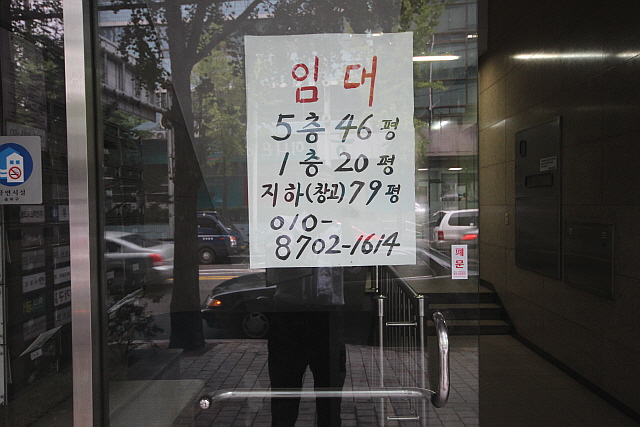 임대
5층 46평
1층 20평
지하(창고) 79평
010-
8702-1614
폐문